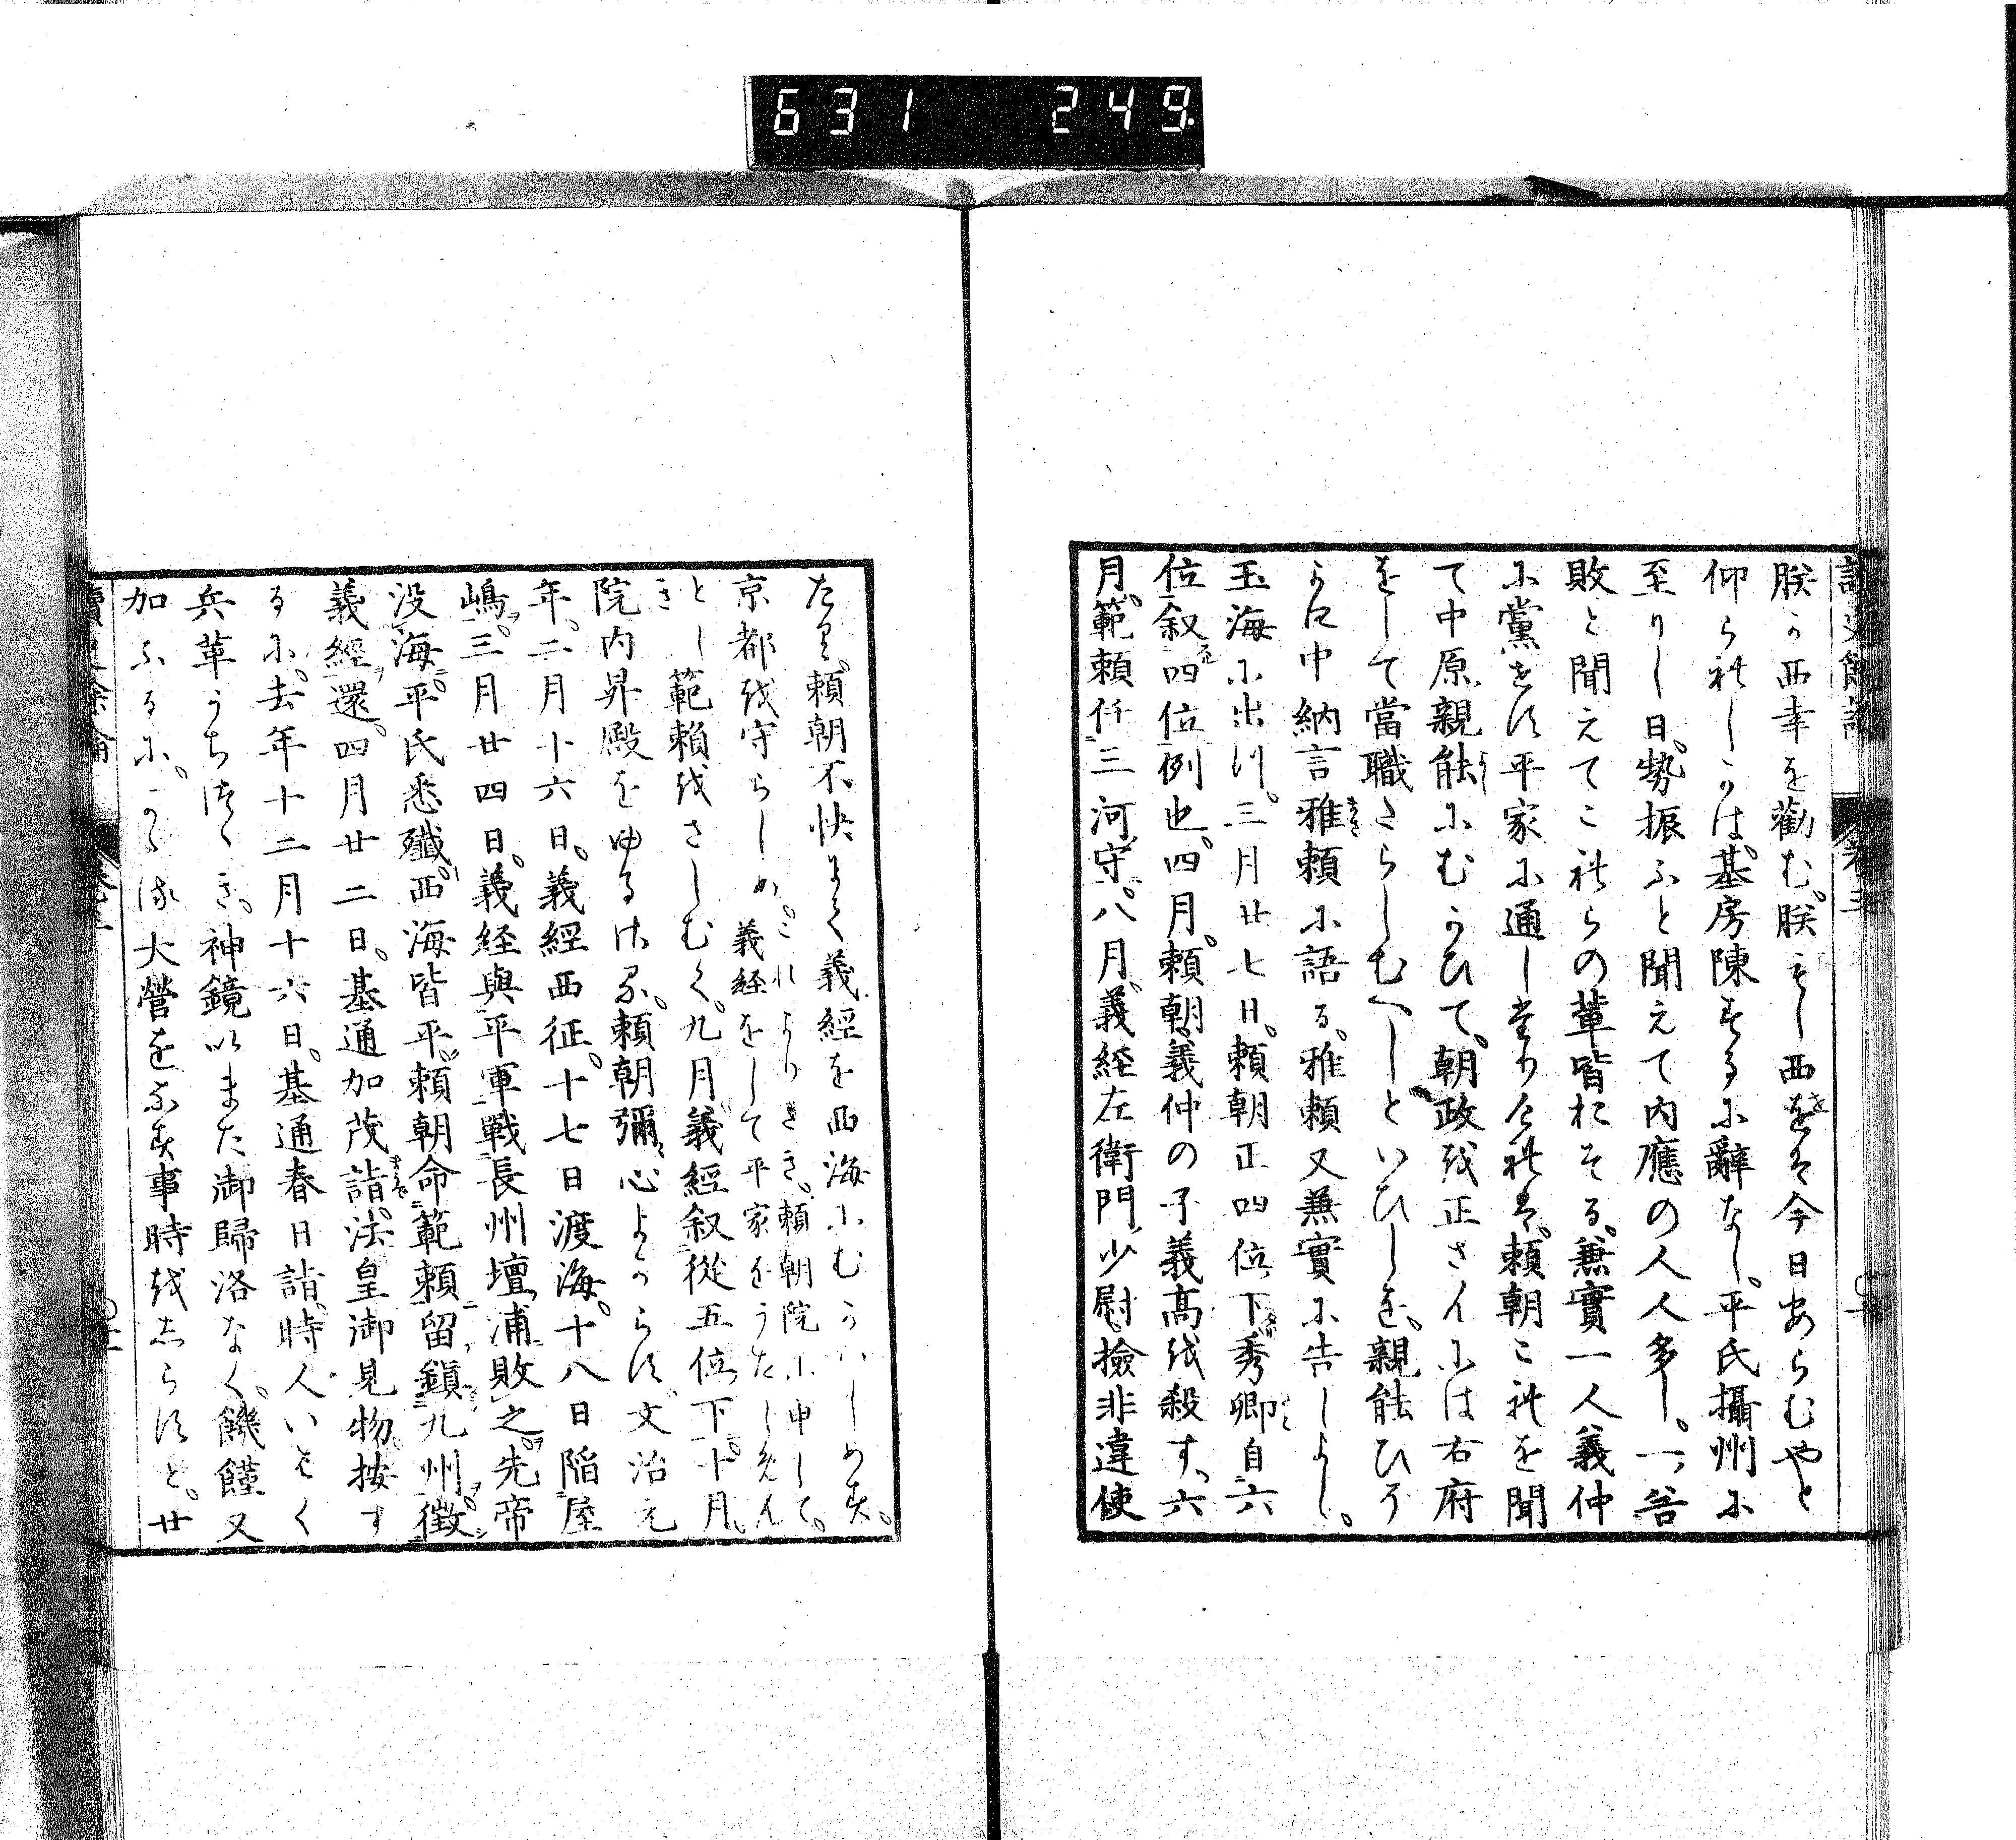 631 249
朕か西幸を勸む。朕もし西せは今日あらむやと
仰られしかは。基房陳するに辭なし。平氏攝州に
至りし日。勢振ふと聞えて内應の人人多し。一谷
敗と聞えてこれらの輩皆おそる。兼實一人義仲
に黨せす平家に通し奉りされは。頼朝これを聞
て中原親能にむかひて。朝政を正さんには右府
をして當職たらしむへしといひしを。親能ひそ
かに中納言雅頼に語る。雅頼又兼實に告しよし。
玉海に出つ。三月廿七日。頼朝正四位下秀卿自六
位叙四位例也。四月。頼朝義仲の子義高を殺す。六
月。範頼任三河守。八月。義経左衛門少尉檢非違使
たり。頼朝不快して義經を西海にむかはしめす。
京都を守らしめ。
これよりさき。頼朝院に申して。
義経をして平家をうたしめん
とし
き
範頼をさしむく。九月義經叙從五位下。十月。
院内昇殿をゆるさる。頼朝彌心よからす。文治元
年。二月十六日。義經西征。十七日渡海。十八日陷屋
嶋。三月廿四日。義経與平軍戰長州壇浦敗之。先帝
没海。平氏悉殲。西海皆平。頼朝命範頼留鎮九州。徴
義經還。四月廿二日。基通加茂詣。法皇御見物按す
るに。去年十二月十六日。基通春日詣。時人いはく
兵革うちつゝき。神鏡いまた御歸洛なく。饑饉又
加ふるに。かゝる大營をなす事時をしらすと。廿